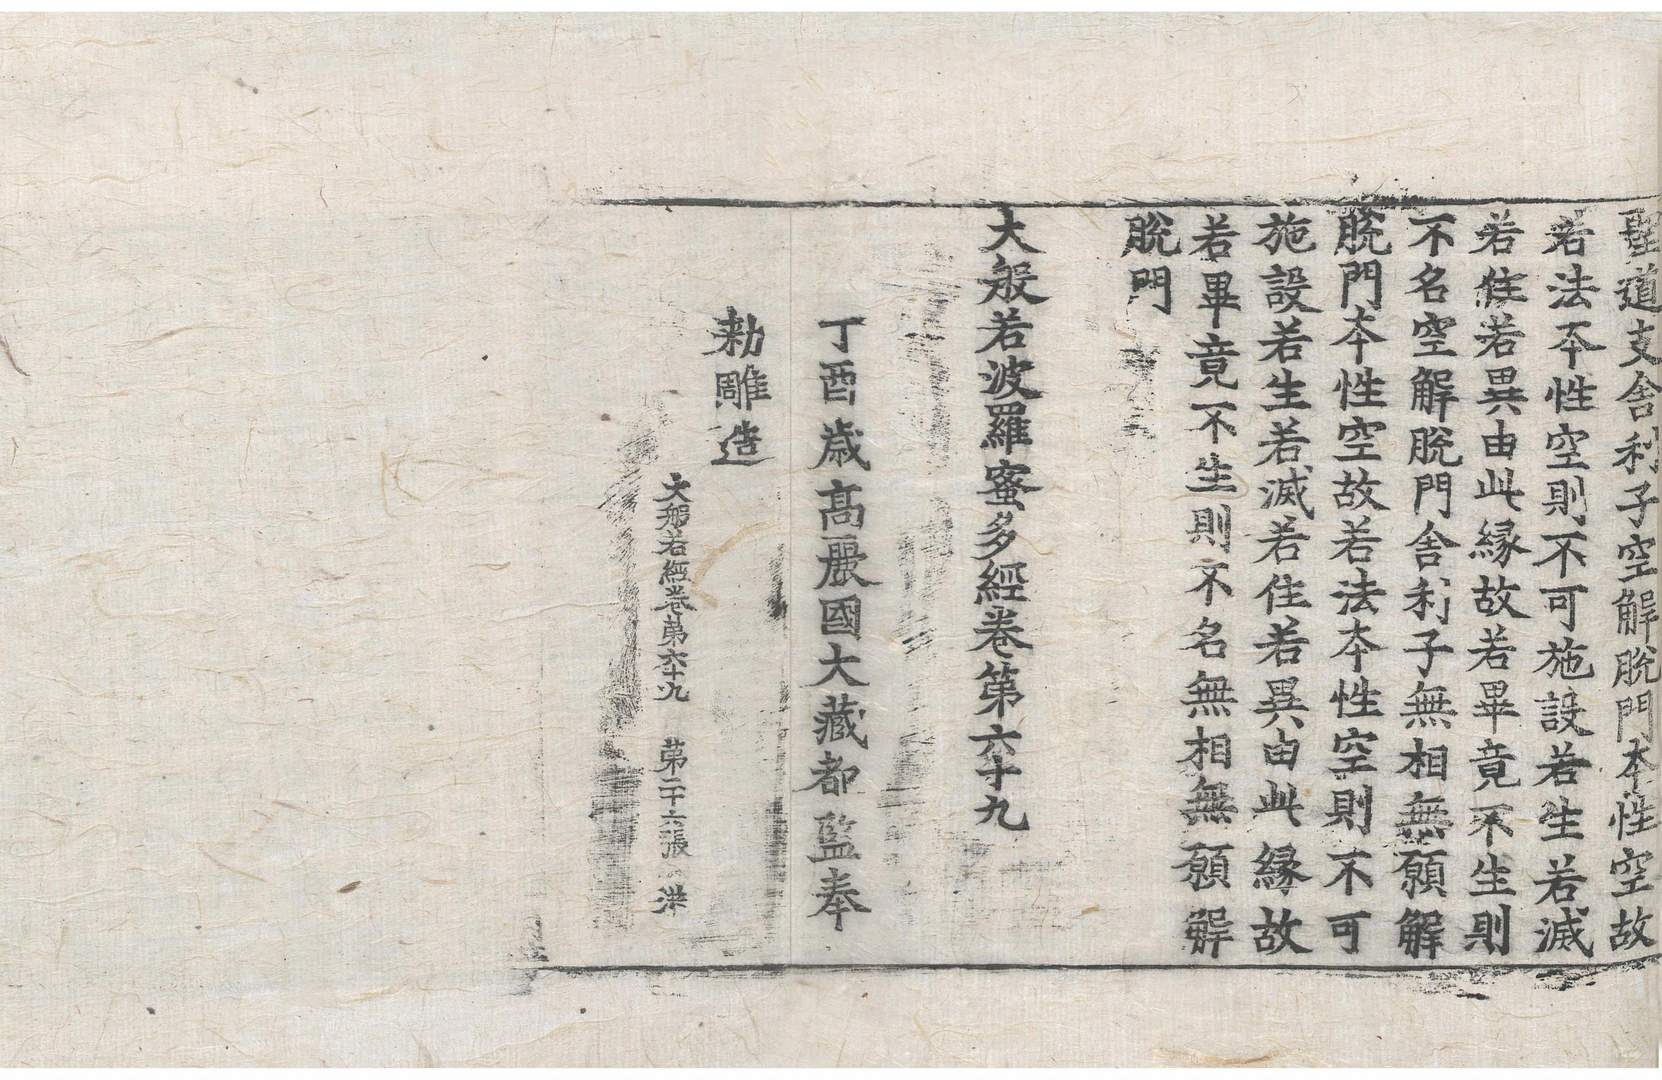 聖道支舎利子空解脫門本性空故
若法本性空則不可施設若生若滅
若住若異由此緣故若畢竟不生則
不名空解脫門舎利子無相無願解
脫門本性空故若法本性空則不可
施設若生若滅若住若異由此緣故
若畢竟不生則不名無相無願解
脫門
大般若波羅蜜多經卷第六十九
丁酉歲高麗國大藏都監奉
勑雕造
大般若經卷第六十九 第二十六張 洪